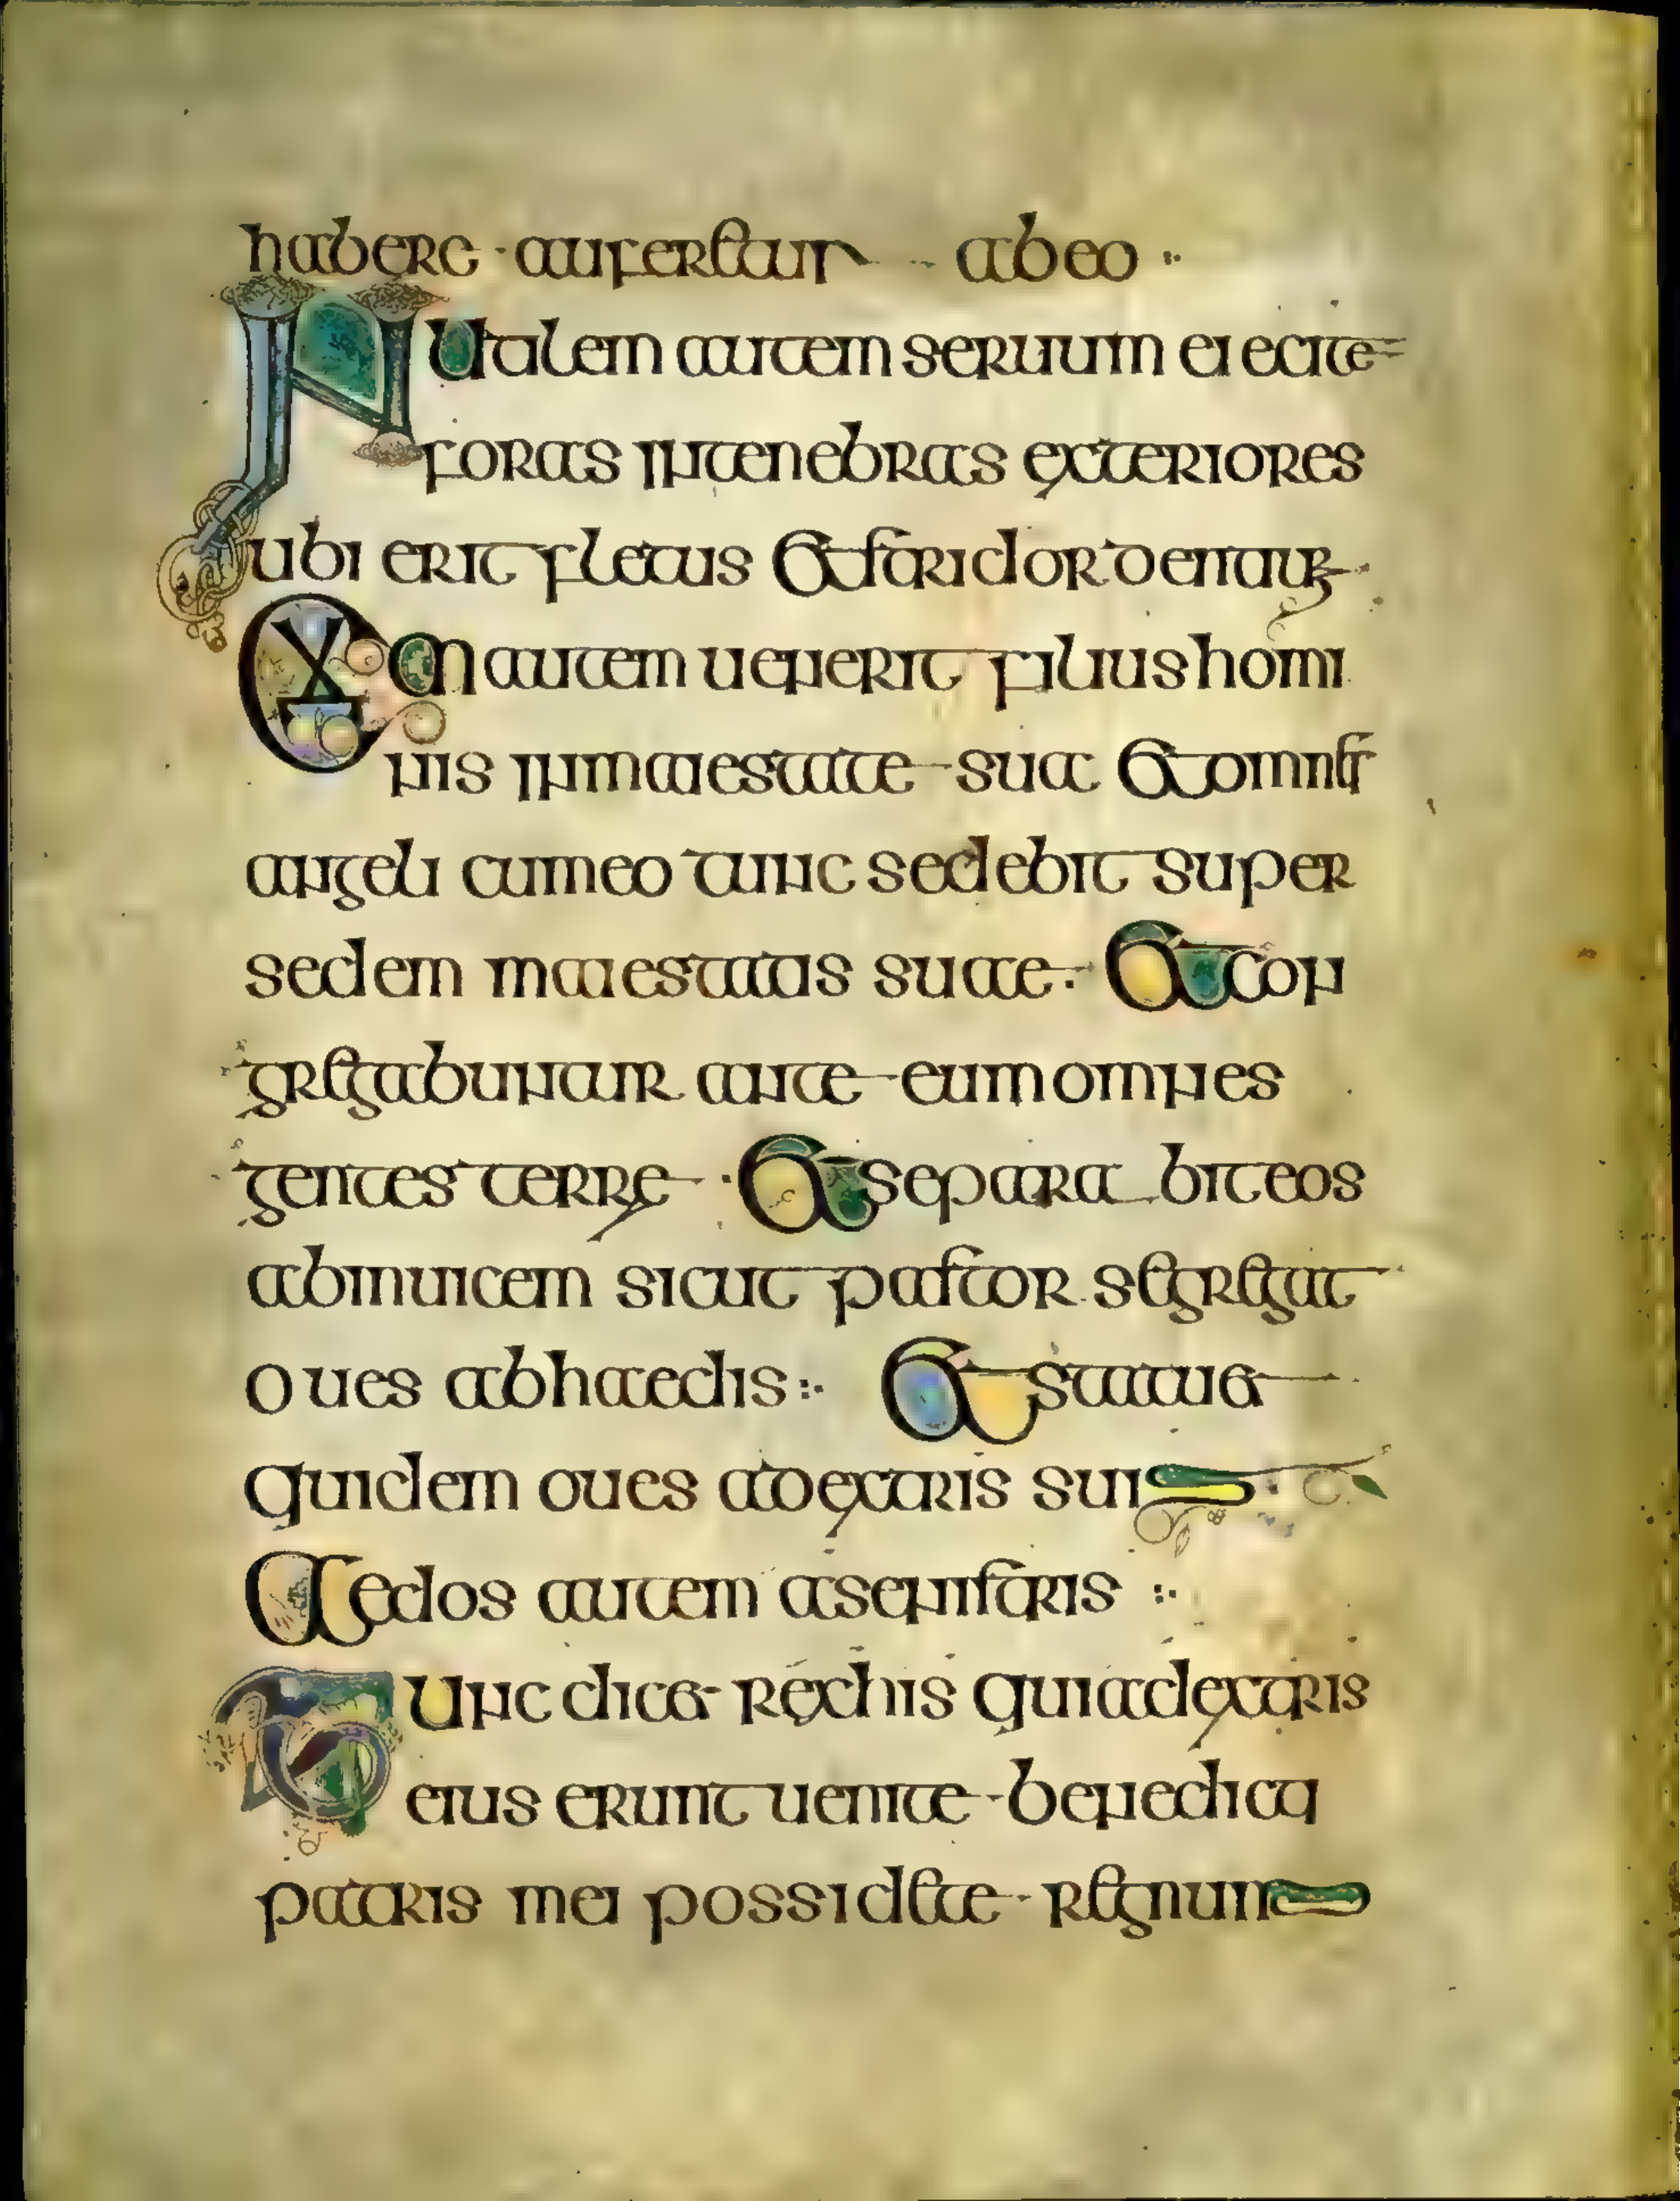 habere · auferetur ab eo ··
INUtilem autem seruum eiecite
foras in tenebras exteriores
ubi erit fletus et stridor dentium
Cum autem uenerit filius homi
nis in maiestate sua et omnes
angeli cum eo tunc sedebit super
sedem maiestatis suae · Et con
gregabuntur ante eum omnes
gentes terre · Et separa bit eos
abinuicem sicut pastor segregat
oues ab haedis :· Et statuet
quidem oues adextris suis ·
Haedos autem asenistris :·
Tunc dicet rex his qui adextris
eius erunt uenite benedicti
patris mei possidete regnum